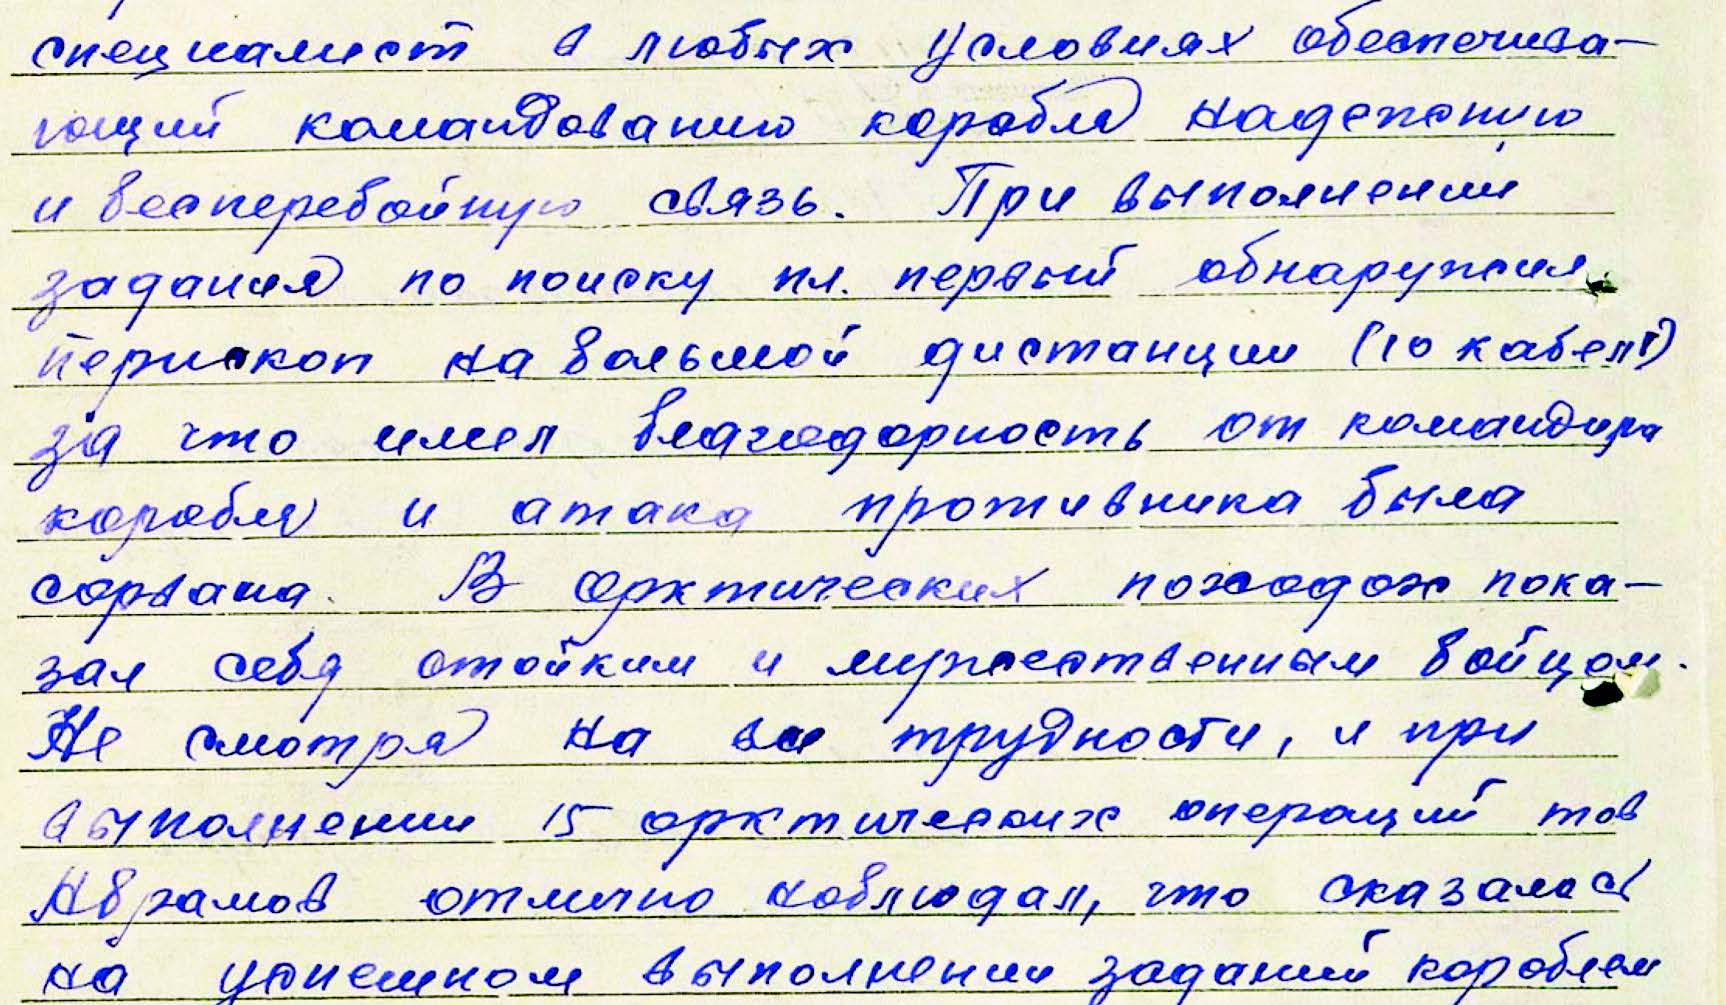 специалист в любых условиях обеспечива-
ющий командованию корабля надежную
и бесперебойную связь. При выполнении
задания по поиску пл. первый обнаружил
перископ на большой дистанции (10 кабельт)
за что имел благодарность от командира
корабля и атака противника была
сорвана. В арктических походах пока-
зал себя стойким и мужественным бойцом.
Не смотря на все трудности, и при
выполнении 15 арктических операций тов
Абрамов отлично наблюдал, что сказалось
на успешном выполнении заданий кораблем